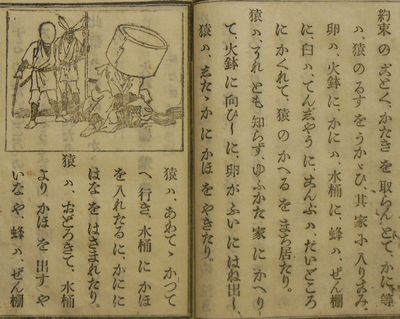 約束のごとく、かたきを取らんとてかに等
ハ、猿のるすをうかゞひ、其家に入りこみ、
卵ハ、火鉢に、かにハ、水桶に、蜂ハ、ぜん棚
に、臼ハ、てんじやうに、こんぶハ、だいどころ
にかくれて、猿のかへるをまち居たり。
猿ハ、それとも知らず、ゆふかた家にかへり
て、火鉢に向ひしに、卵がふいにはね出し、
猿ハ、ゑたゝかにかほをやきたり。
猿ハ、あわてゝかつて
へ行き、水桶にかほ
を入れたるに、かにに
はなをはさまれたり。
猿ハ、おどろきて、水桶
よりかほを出すや
いなや、蜂ハ、ぜん棚